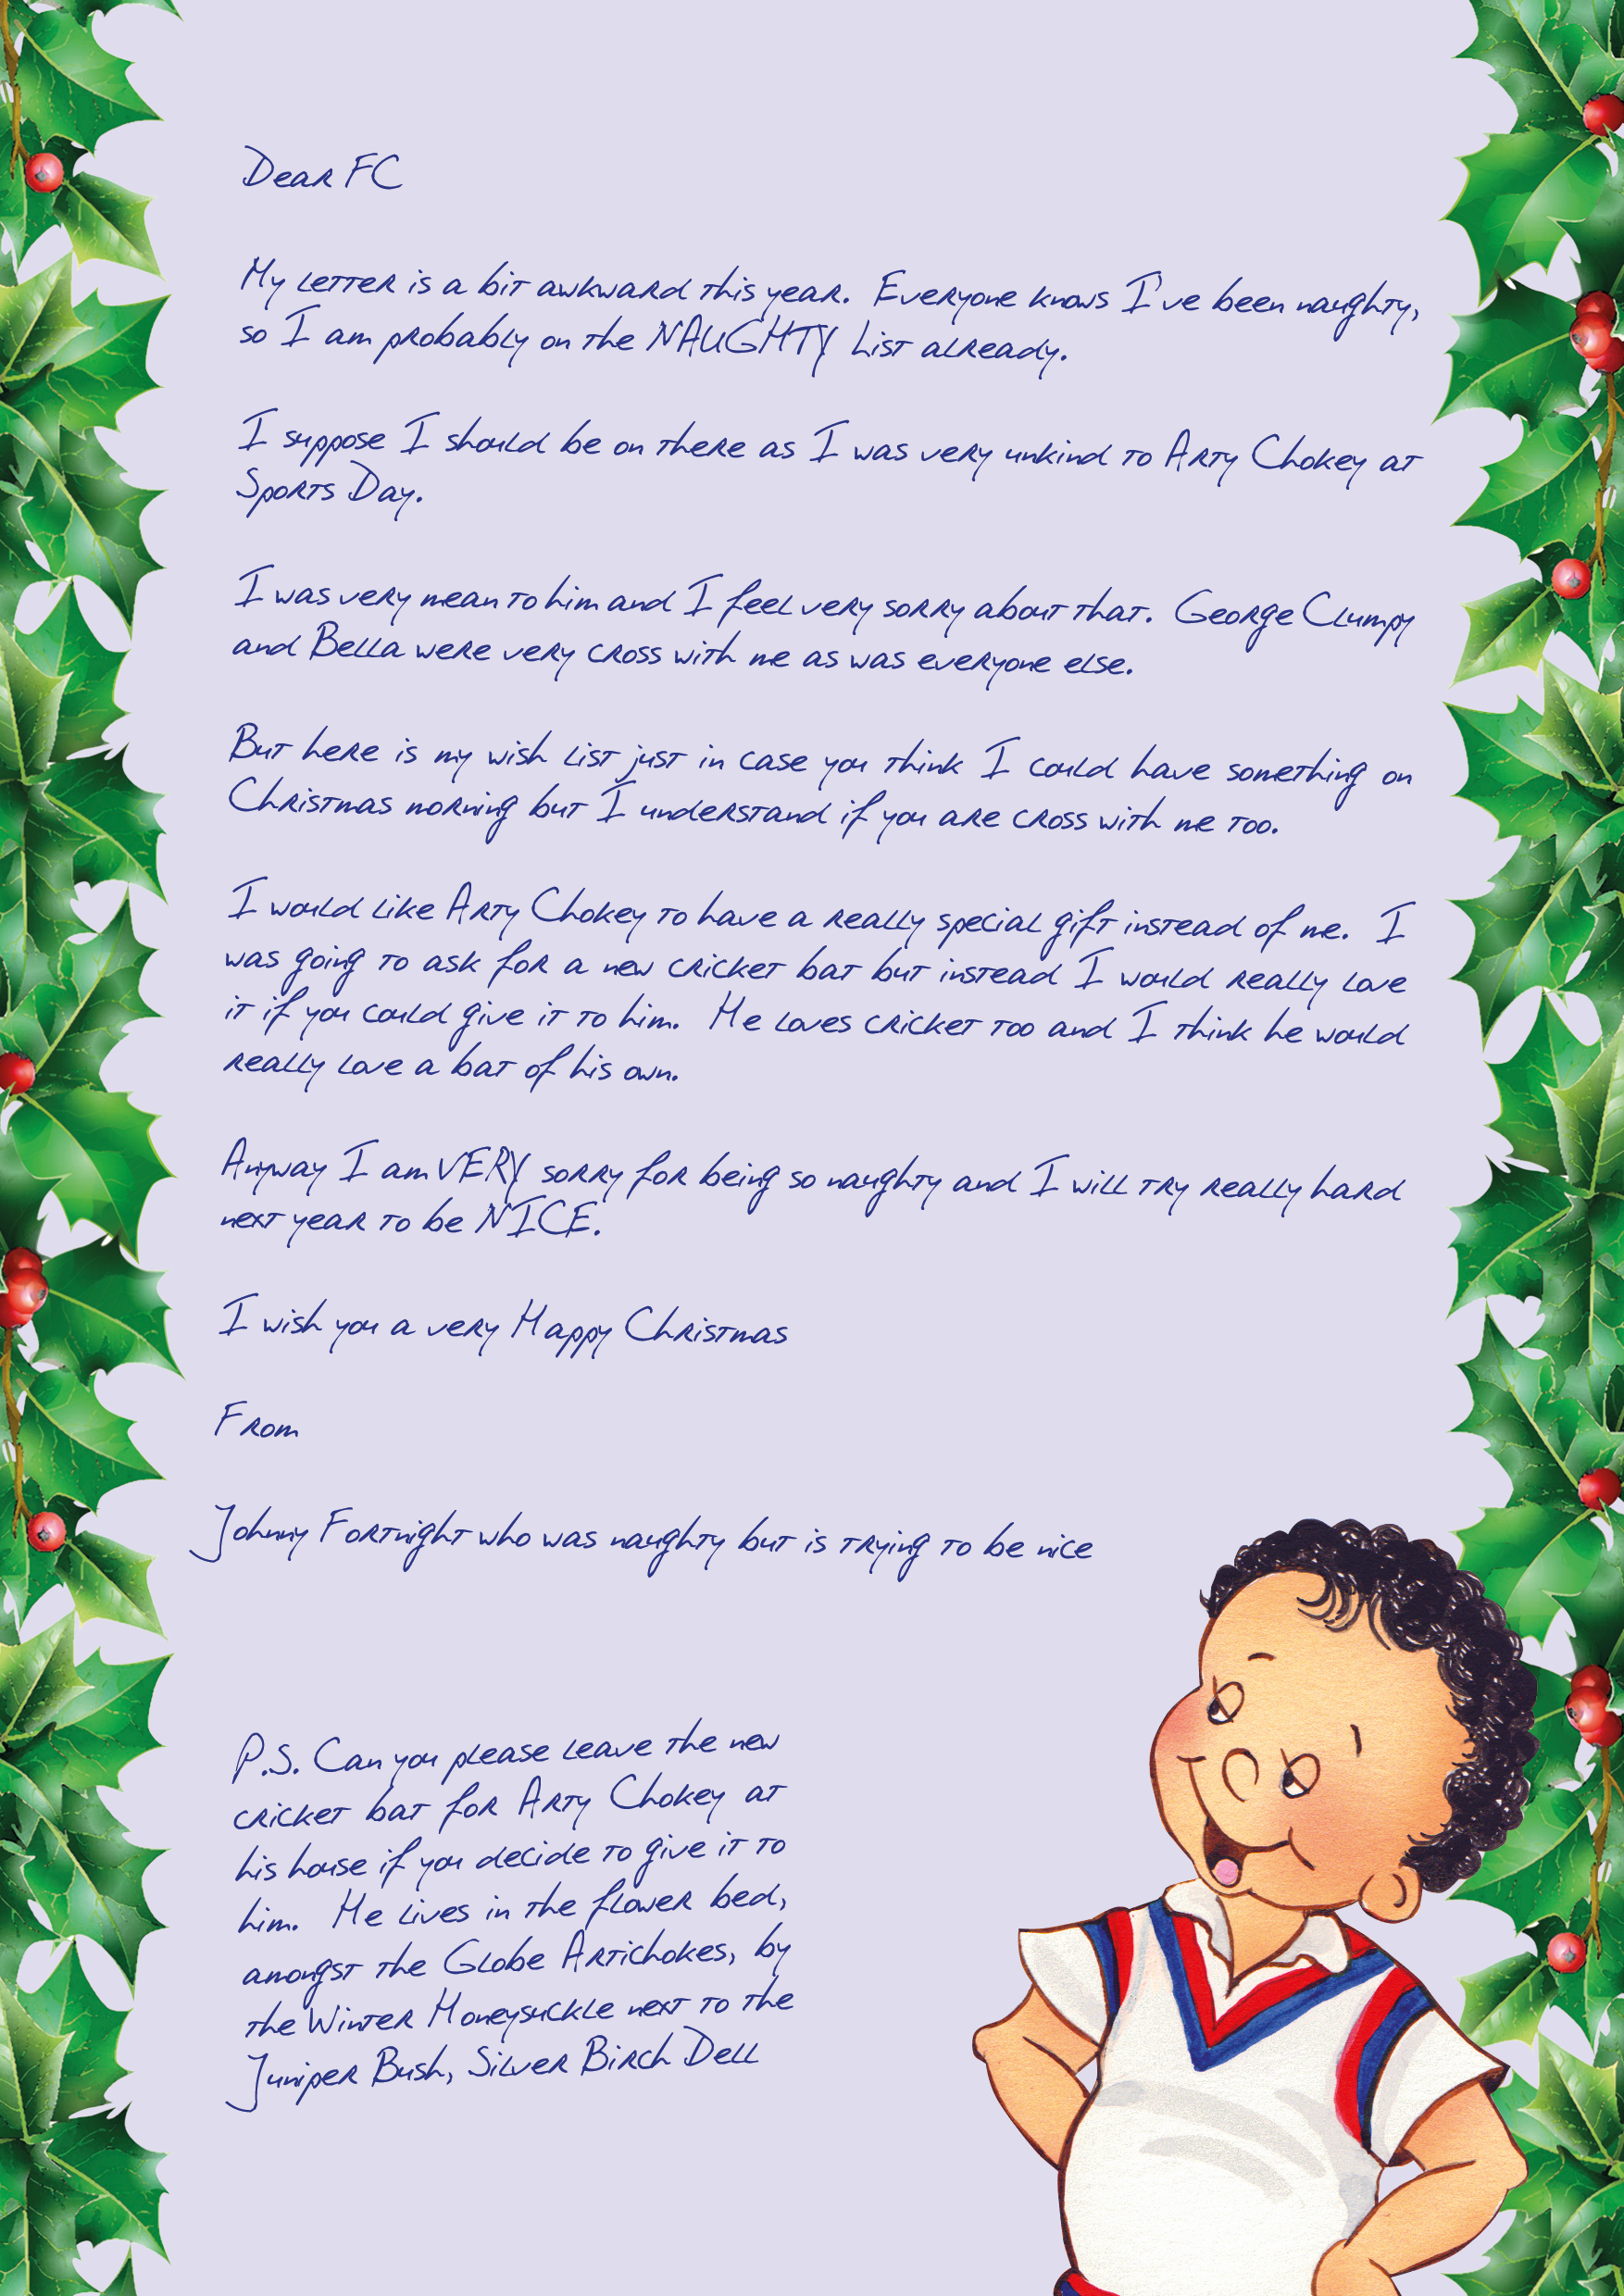 Dear FC
My letter is a bit awkward this year. Everyone knows I've been naughty,
so I am probably on the NAUGHTY List already.
I suppose I should be on there as I was very unkind to Arty Chokey at
Sports Day.
I was very mean to him and I feel very sorry about that. George Clumpy
and Bella were very cross with me as was everyone else.
But here is my wish list just in case you think I could have something on
Christmas morning but I understand if you are cross with me too.
I would like Arty Chokey to have a really special gift instead of me. I
was going to ask for a new cricket bat but instead I would really love
it if you could give it to him. He loves cricket too and I think he would
really love a bat of his own.
Anyway I am VERY sorry for being so naughty and I will try really hard
next year to be NICE.
I wish you a very Happy Christmas
From
Johnny Fortnight who was naughty but is trying to be nice
P.S. Can you please leave the new
cricket bat for Arty Chokey at
his house if you decide to give it to
him. He lives in the flower bed,
amongst the Globe Artichokes, by
the Winter Honeysuckle next to the
Juniper Bush, Silver Birch Dell